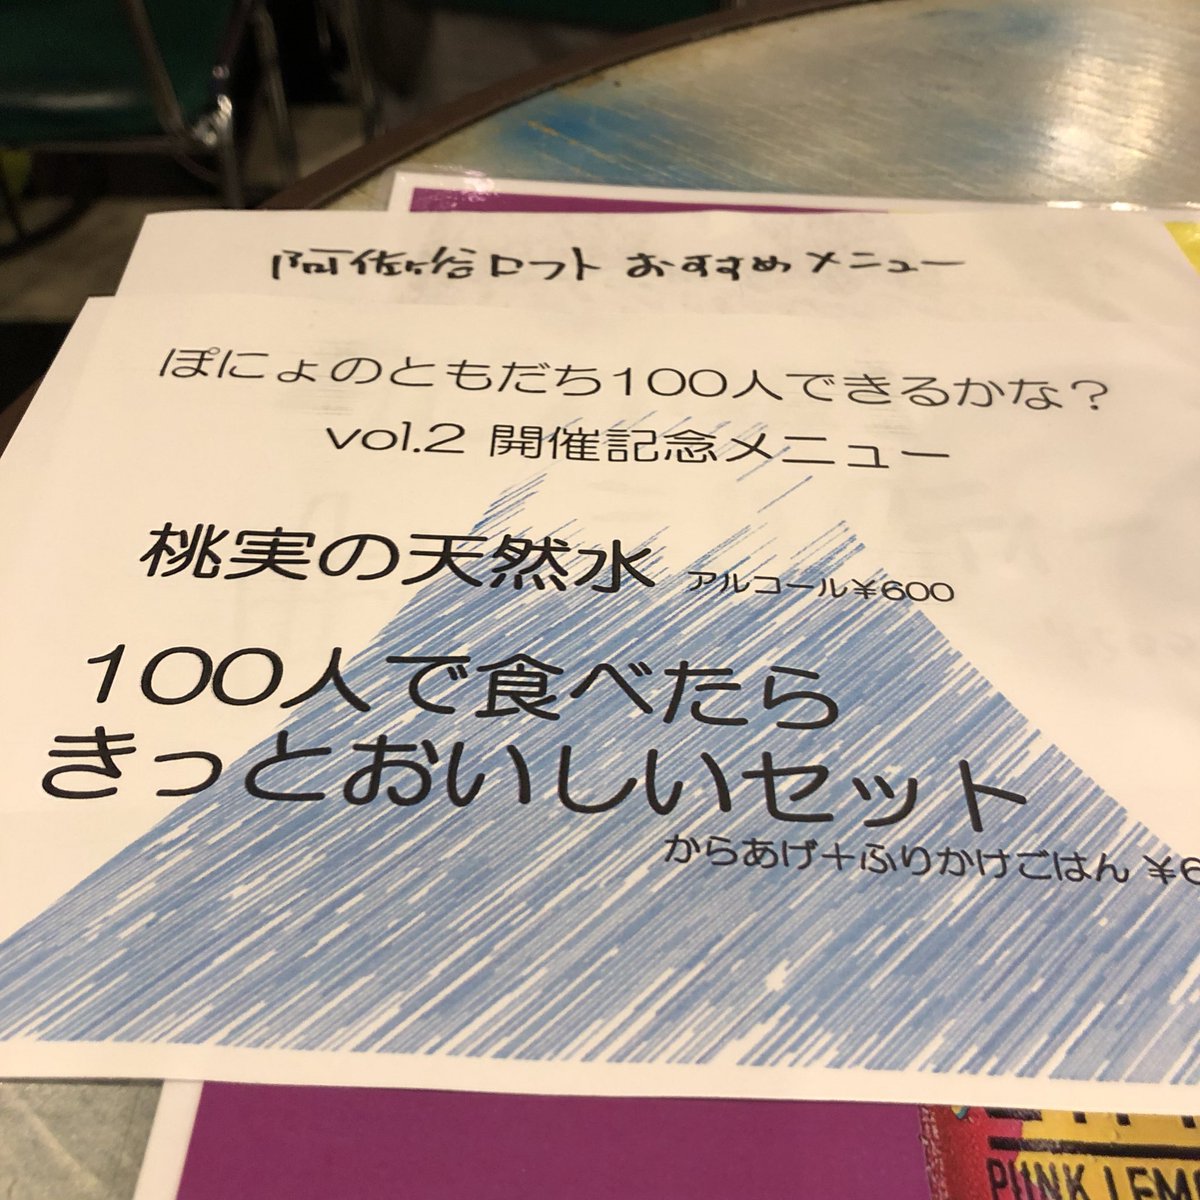 阿佐ヶ谷ロフト おすすめメニュー
ぽにょのともだち100人できるかな?
vol.2 開催記念メニュー
桃実の天然水 アルコール¥600
100人で食べたら
きっとおいしいセット
からあげ+ふりかけごはん ¥6
PUNK LEM